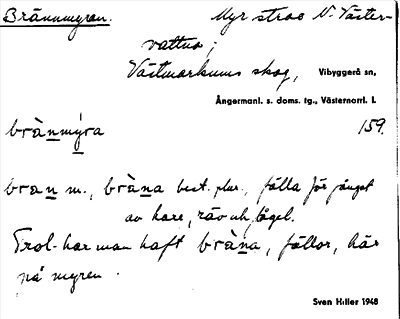 Brännmyran. Myr strax N. Väster-
vattna;
Västmarkums skog, Vibyggerå sn,
Ångermanl. s. doms. tg., Västernorrl. l.
bràn̲mý̲ra 159.
bran̲ m., bràn̲a best. plur., fälla för fånget
av hare, räv och fågel.
Trol. har man haft bràn̲a, fällor, här
på myren.
Sven Hiller 1948